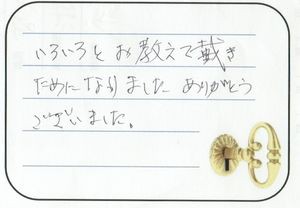 いろいろとお教えて戴き
ためになりました ありがとう
ございました。